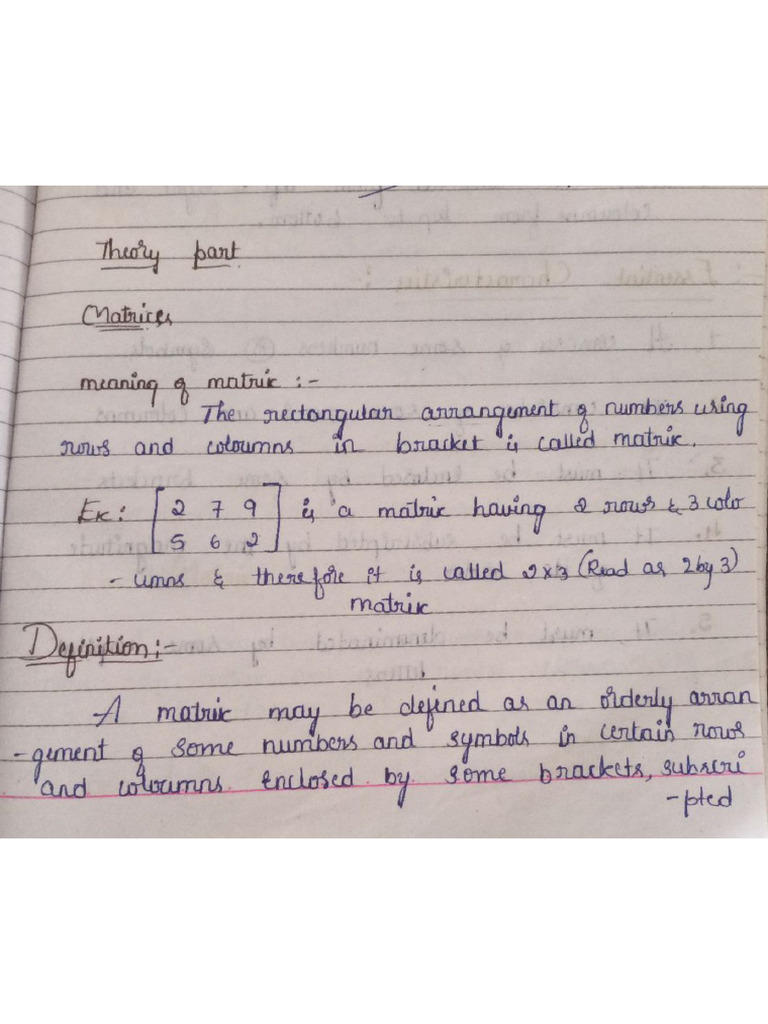 Theory part
Matrices
meaning of matrix :-
The rectangular arrangement of numbers using
rows and coloumns in bracket is called matrix.
Ex: [2 7 9
5 6 2] is a matrix having 2 rows & 3 colo
- umns & therefore it is called 2x3 (Read as 2 by 3)
matrix
Definition :-
A matrix may be defined as an orderly arran
-gement of some numbers and symbols in certain rows
and coloumns enclosed by some brackets, subscri
-pted